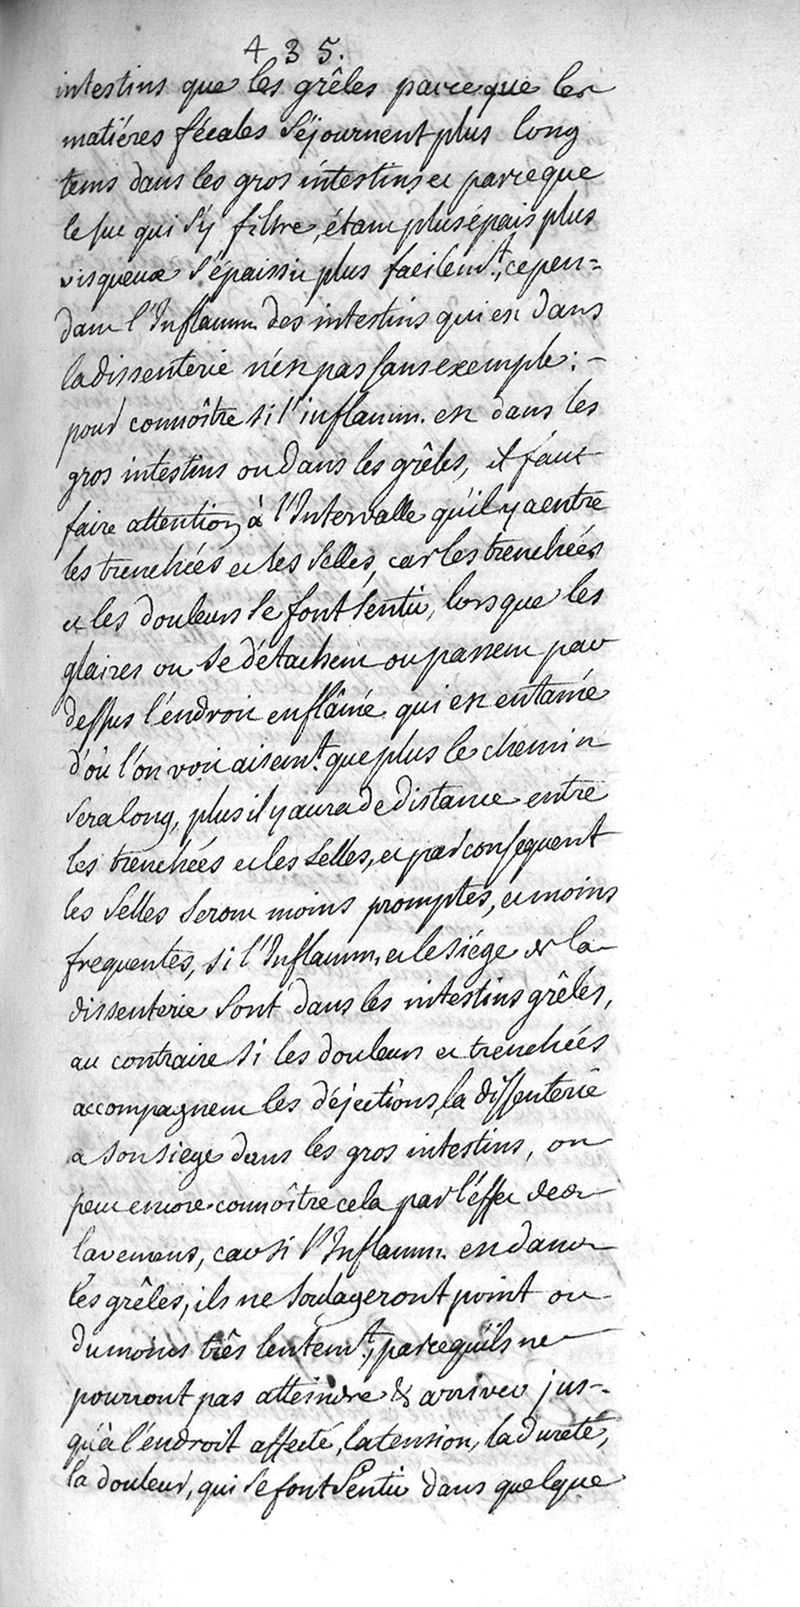 435.
intestins que les grêles parceque les
matiéres fécales séjournent plus long
tems dans les gros intestins et parceque
le suc qui s'y filtre, étant plus épais plus
visqueux s'épaissit plus facilemt., cepen=
dant l'Inflamm. des intestins qui est dans
la dissenterie n'est pas sans exemple: -
pour connoître si l'inflamm. est dans les
gros intestins ou dans les grêles, il faut
faire attention à l'Intervalle qu'il y a entre
les trenchées et les selles, car les trenchées
et les douleurs se font sentir, lorsque les
glaires ou se détachent ou passent par
dessus l'éndroit enflâmé qui est entamé
d'où l'on voit aisemt. que plus le chemin
sera long, plus il y aura de distance entre
les trenchées et les selles, et par consequent
les selles seront moins promptes, et moins
frequentes, si l'Inflamm. et le siége de la
dissenterie sont dans les intestins grêles,
au contraire si les douleurs et trenchées
accompagnent les déjections, la dissenterie
a son siege dans les gros intestins, on
peut encore connoître cela par l'éffet des
lavemens, car si l'Inflamm. est dans
les grêles, ils ne soulageront point ou
du moins très lentemt., parcequ'ils ne
pourront pas atteindre & arriver jus-
qu'à l'éndroit affecté, la tension, la dureté,
la douleur, qui se font sentir dans quelque